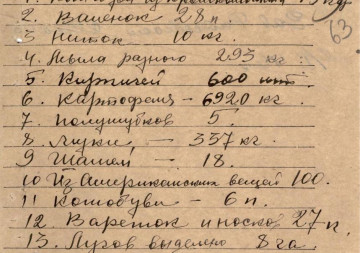 2. Валенок 28 п.
63
3. Ниток 10 кг.
4. Мыла разного 293 кг.
5. Кирпичей 600 шт.
6. Картофеля - 6920 кг.
7. Полушубков 5.
8. Муки — 337 кг.
9 Шалей — 18.
10 Из Американских вещей 100.
11 Кожобуви — 6 п.
12. Вареток и носко 27 п.
13. Лугов выделено 8 га.